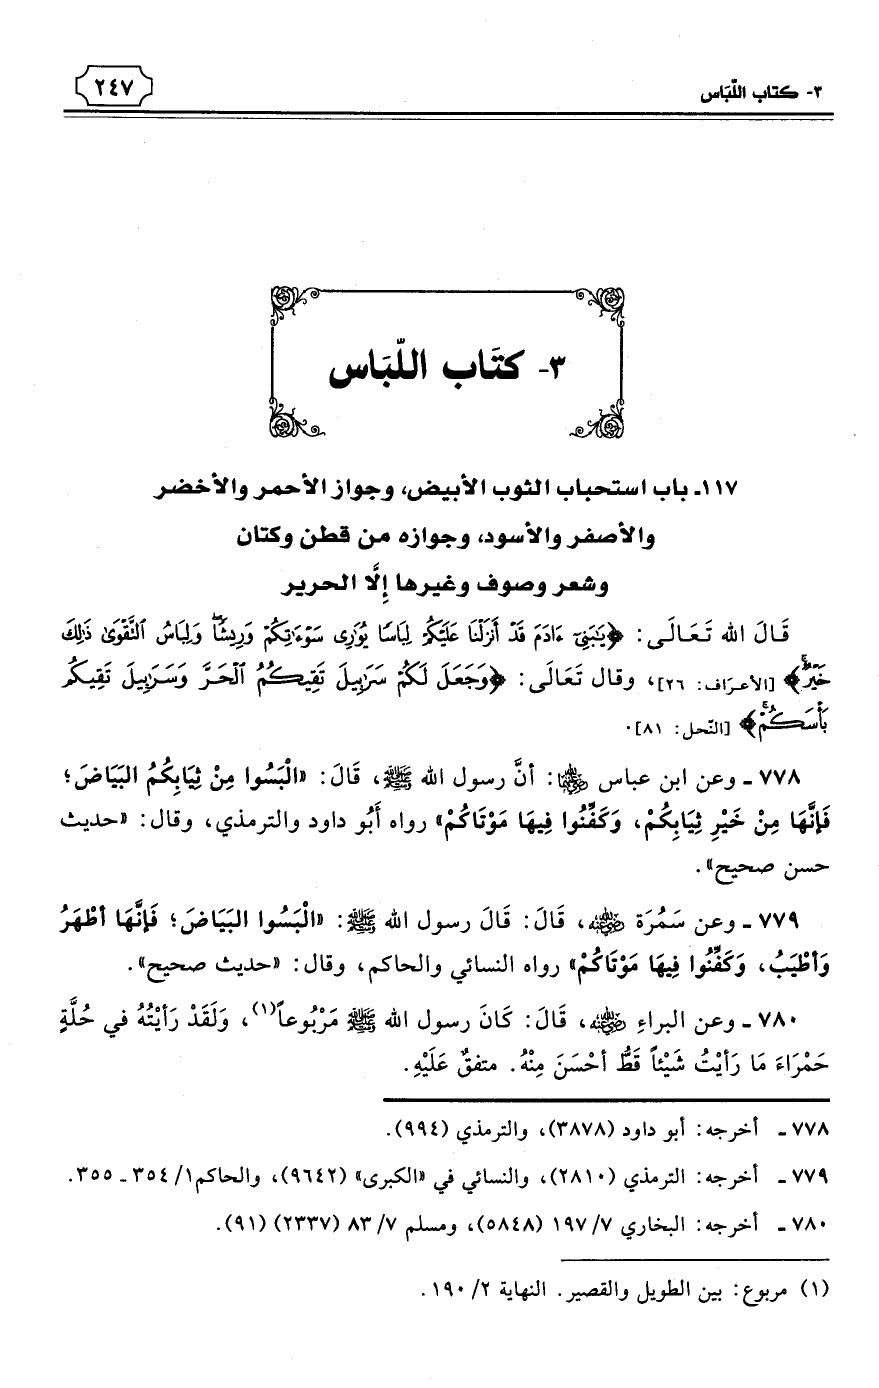 ٣- كتاب اللّبَاس
٢٤٧
٣- كتَاب اللّبَاس
١١٧ـ باب استحباب الثوب الأبيض، وجواز الأحمر والأخضر
والأصفر والأسود، وجوازه من قطن وكتان
وشعر وصوف وغيرها إِلَّا الحرير
قَالَ الله تَعَالَى: ﴿يَٰبَنِىٓ ءَادَمَ قَدْ أَنزَلْنَا عَلَيْكُمْ لِبَاسًا يُوَٰرِى سَوْءَٰتِكُمْ وَرِيشًاۖ وَلِبَاسُ ٱلنَّقْوَىٰ ذَٰلِكَ
خَيْرٌۚ﴾ [الأعرَاف: ٢٦]، وقال تَعَالَى: ﴿وَجَعَلَ لَكُمْ سَرَٰبِيلَ تَقِيكُمُ ٱلْحَرَّ وَسَرَٰبِيلَ تَقِيكُم
بَأْسَكُمْۚ﴾ [النّحل: ٨١].
٧٧٨ ـ وعن ابن عباس رضي الله عنهما: أنَّ رسول الله ﷺ، قَالَ: «الْبَسُوا مِنْ ثِيَابِكُمُ البَيَاضَ؛
فَإِنَّهَا مِنْ خَيْرِ ثِيَابِكُمْ، وَكَفِّنُوا فِيهَا مَوْتَاكُمْ» رواه أَبُو داود والترمذي، وقال: «حديث
حسن صحيح».
٧٧٩ ـ وعن سَمُرَة رضي الله عنه، قَالَ: قَالَ رسول الله ﷺ: «الْبَسُوا البَيَاضَ؛ فَإِنَّهَا أطْهَرُ
وَأطْيَبُ، وَكَفِّنُوا فِيهَا مَوْتَاكُمْ» رواه النسائي والحاكم، وقال: «حديث صحيح».
٧٨٠ ـ وعن البراءِ رضي الله عنه، قَالَ: كَانَ رسول الله ﷺ مَرْبُوعاً(١)، وَلَقَدْ رَأيْتُهُ في حُلَّةٍ
حَمْرَاءَ مَا رَأيْتُ شَيْئاً قَطُّ أحْسَنَ مِنْهُ. متفقٌ عَلَيْهِ.
٧٧٨ ـ أخرجه: أبو داود (٣٨٧٨)، والترمذي (٩٩٤).
٧٧٩ ـ أخرجه: الترمذي (٢٨١٠)، والنسائي في «الكبرى» (٩٦٤٢)، والحاكم١/ ٣٥٤ ـ ٣٥٥.
٧٨٠ ـ أخرجه: البخاري ٧/ ١٩٧ (٥٨٤٨)، ومسلم ٧/ ٨٣ (٢٣٣٧) (٩١).
(١) مربوع: بين الطويل والقصير. النهاية ٢/ ١٩٠.